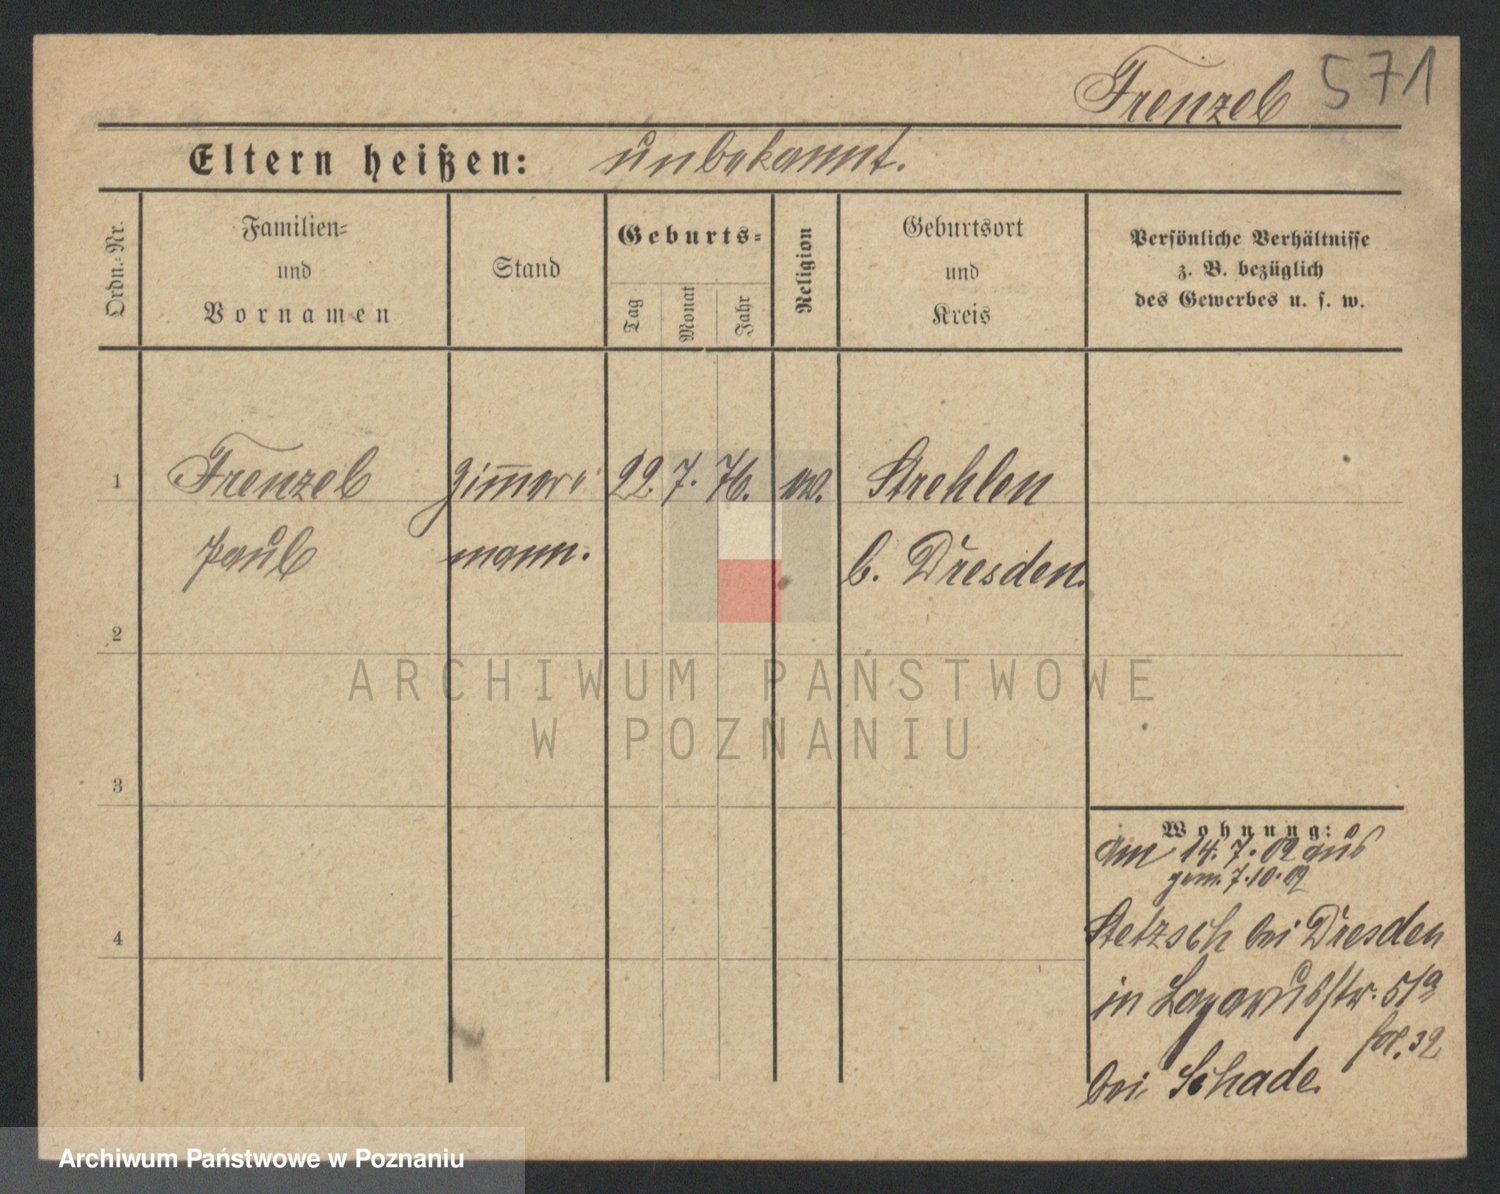 Frenzel 571
Eltern heißen: unbekannt.
Ordn.-Nr.
Familien-
und
Vornamen
Stand
Geburts-
Tag
Monat
Jahr
Religion
Geburtsort
und
Kreis
Persönliche Verhältnisse
z. B. bezüglich
des Gewerbes u. s. w.
1 Frenzel Zimmer- 22. 7. 76. ev. Strehlen
Paul mann. b. Dresden.
2
ARCHIWUM PAŃSTWOWE
W POZNANIU
3
Wohnung:
am 14.7.02 aus
gem. 7.10.02
4
Stetzsch bei Dresden
in Lazarusstr. 51a
fol. 32
bei Schade.
Archiwum Państwowe w Poznaniu